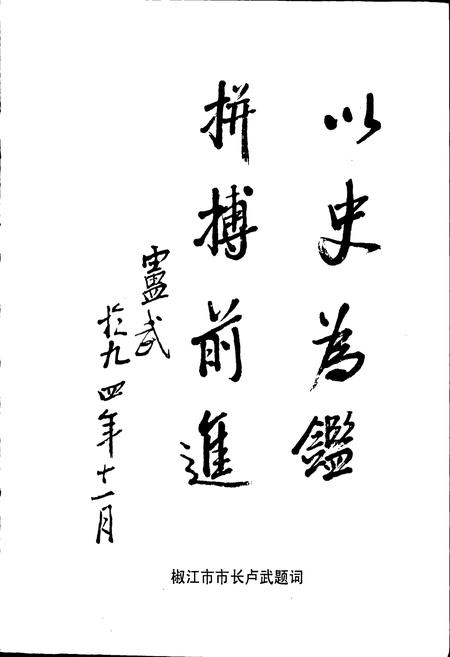 以史為鑑
拼搏前進
盧武
於九四年十一月
椒江市市长卢武题词